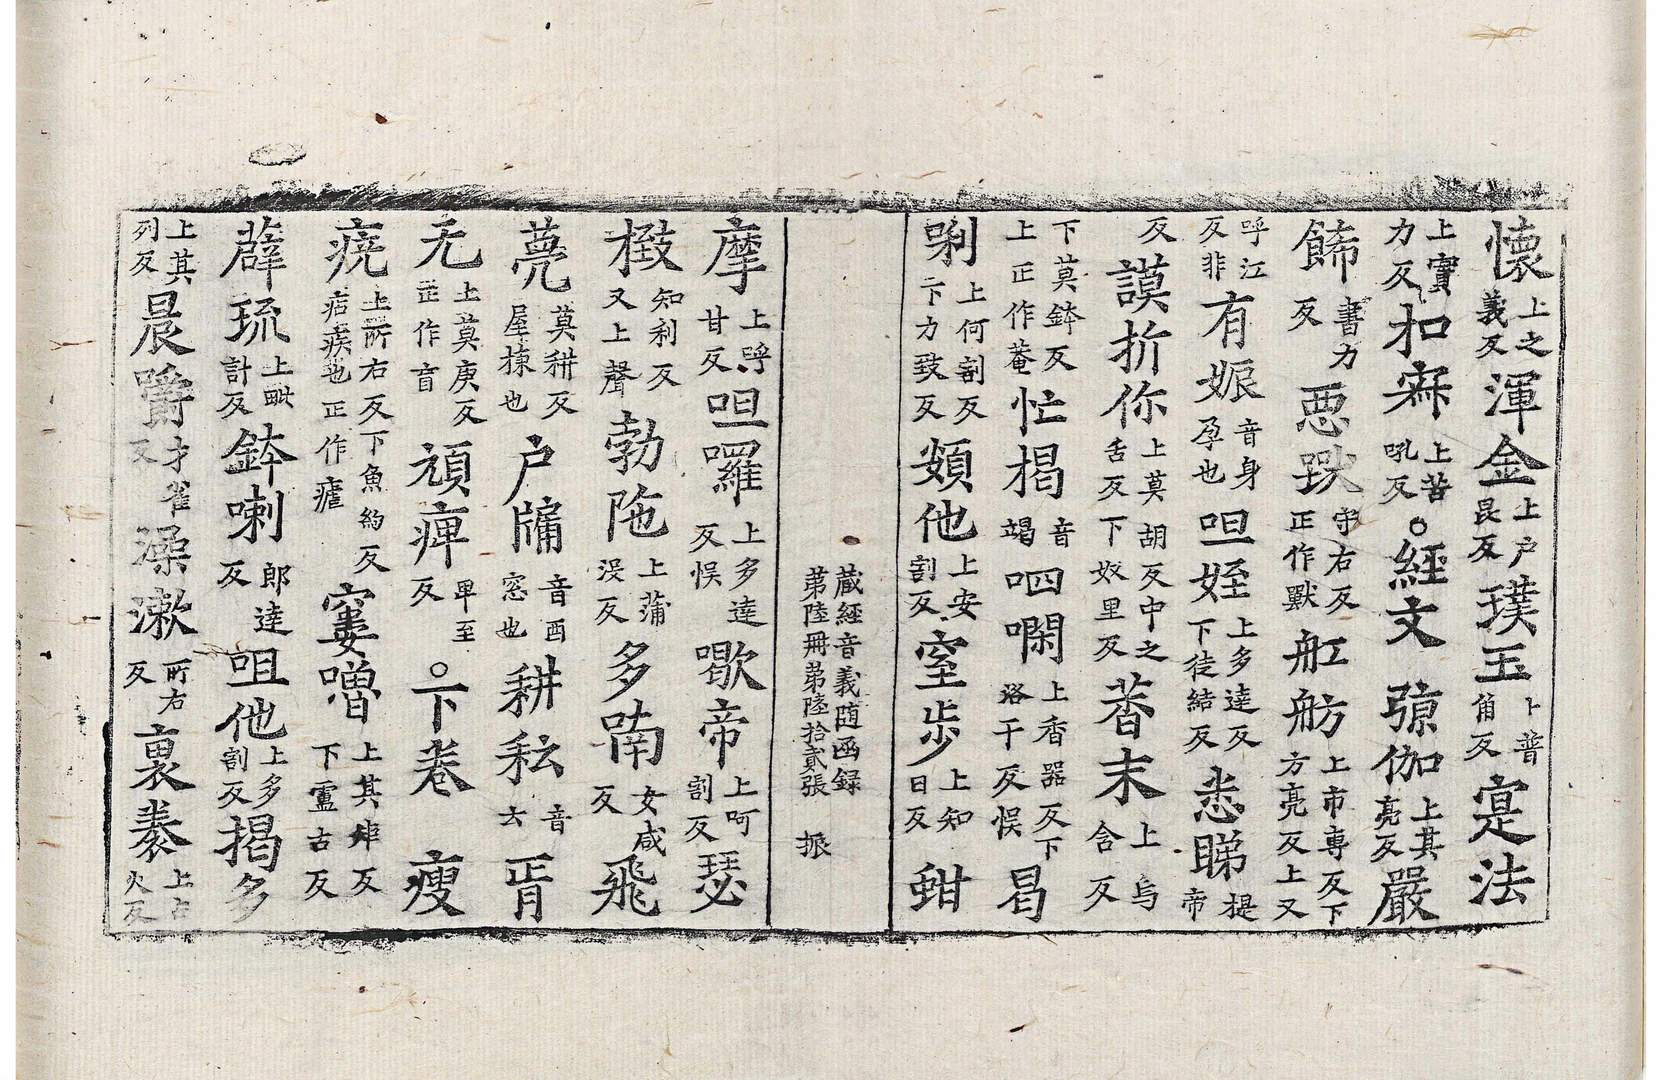 懷上之義反渾金上户昆反璞玉上普角反寔法
上實力反扣寐上苦吼反○經文弶伽上其亮反嚴
餙書力反惡㹜守右反正作獸舡舫上市專反下方亮反上又
呼江反非有娠音身孕也呾姪上多達反下徒結反恚睇提帝
反謨折你上莫胡反中之舌反下奴里反菴末上烏合反
下莫鉢反上正作菴忙楬音竭呬㘕上香器反下洛干反悮曷
唎上何割反下力致反頞他上安割反窒步上知日反蚶
藏經音義随函録
第陸冊第陸拾貳張 振
摩上呼甘反呾囉上多達反悮歇帝上呵割反瑟
㨖知利反又上聲勃陁上蒲没反多喃女咸反飛
甍莫耕反屋棟也户牖音酉窓也耕耘音云胥
无上莫庚反正作盲頑痺卑至反○下卷瘦
㾐上所右反下魚約反痁疾也正作瘧窶噜上其矩反下盧古反
薜琉上毗計反鉢喇郎達反呾他上多割反揭多
上其列反晨嚼才雀反澡漱所右反裹